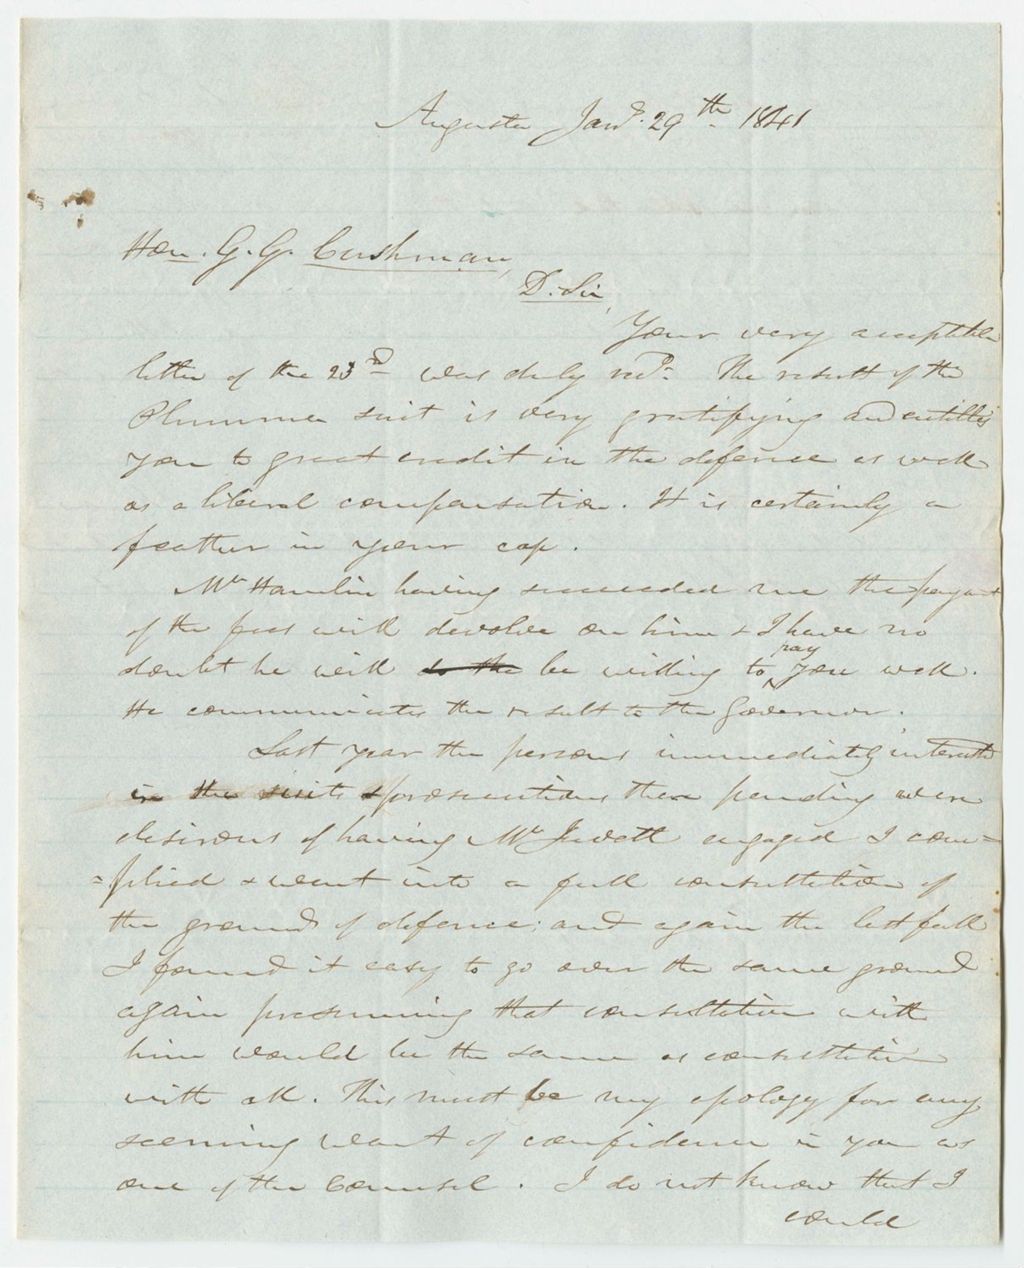 Augusta Jany. 29th 1841
Hon. G. G. Cushman,
D. Sir,
Your very acceptable
letter of the 23d was duly recd. The result of the
Plummer suit is very gratifying and entitles
you to great credit in the defence as well
as a liberal compensation. It is certainly a
feather in your cap.
Mr Hamlin having succeeded me the paymt
of the fees will devolve on him & I have no
doubt he will to the be willing to pay you well.
He communicates the result to the Governor.
Last year the persons immediately interested
in the suits & prosecutions then pending were
desirous of having Mr Jewett engaged I com=
=plied & went into a full consultation of
the grounds of defence; and again the last fall
I found it easy to go over the same ground
again presuming that consultation with
him would be the same as consultation
with all. This must be my apology for any
seeming want of confidence in you as
one of the Counsel. I do not know that I
could